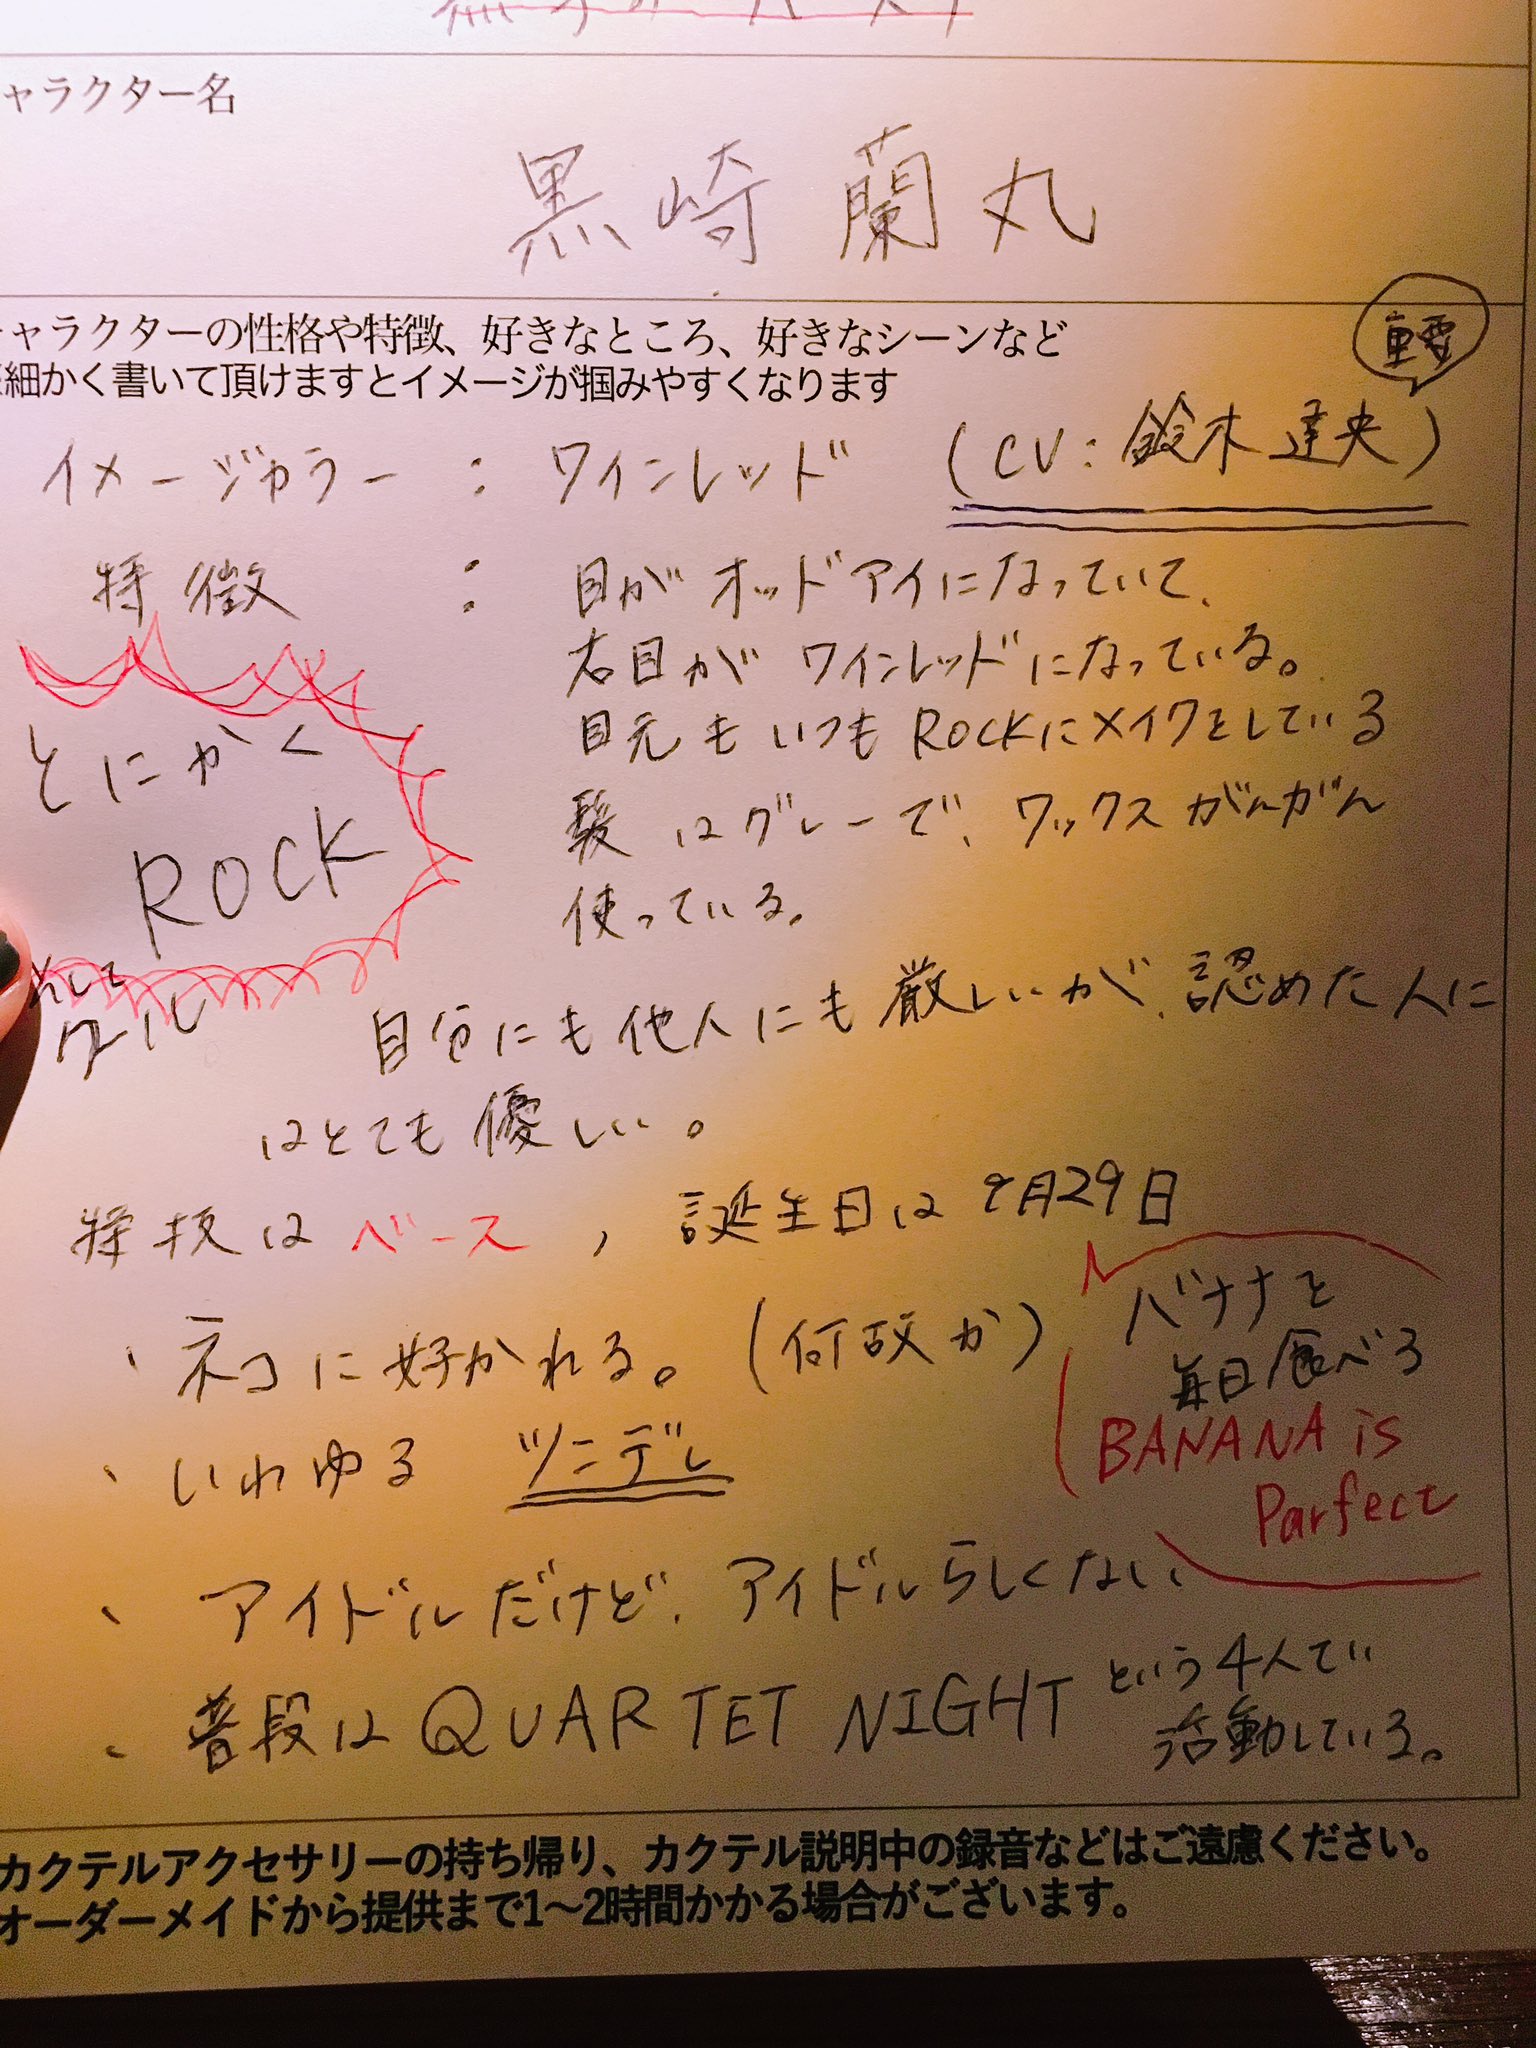 ャラクター名
黒崎 蘭丸
ャラクターの性格や特徴、好きなところ、好きなシーンなど
細かく書いて頂けますとイメージが掴みやすくなります
重要
イメージカラー : ワインレッド (CV:鈴木達央)
特徴 : 目がオッドアイになっていて、
右目がワインレッドになっている。
目元もいつもROCKにメイクをしている
髪はグレーで、ワックスがんがん
使っている。
とにかく
ROCK
そして
クール
自分にも他人にも厳しいが、認めた人に
はとても優しい。
特技はベース , 誕生日は9月29日
・ネコに好かれる。(何故か)
バナナを
毎日食べろ
BANANA is
Parfect
・いわゆる ツンデレ
・アイドルだけど、アイドルらしくない
・普段は QUARTET NIGHT という4人で
活動している。
カクテルアクセサリーの持ち帰り、カクテル説明中の録音などはご遠慮ください。
オーダーメイドから提供まで1〜2時間かかる場合がございます。